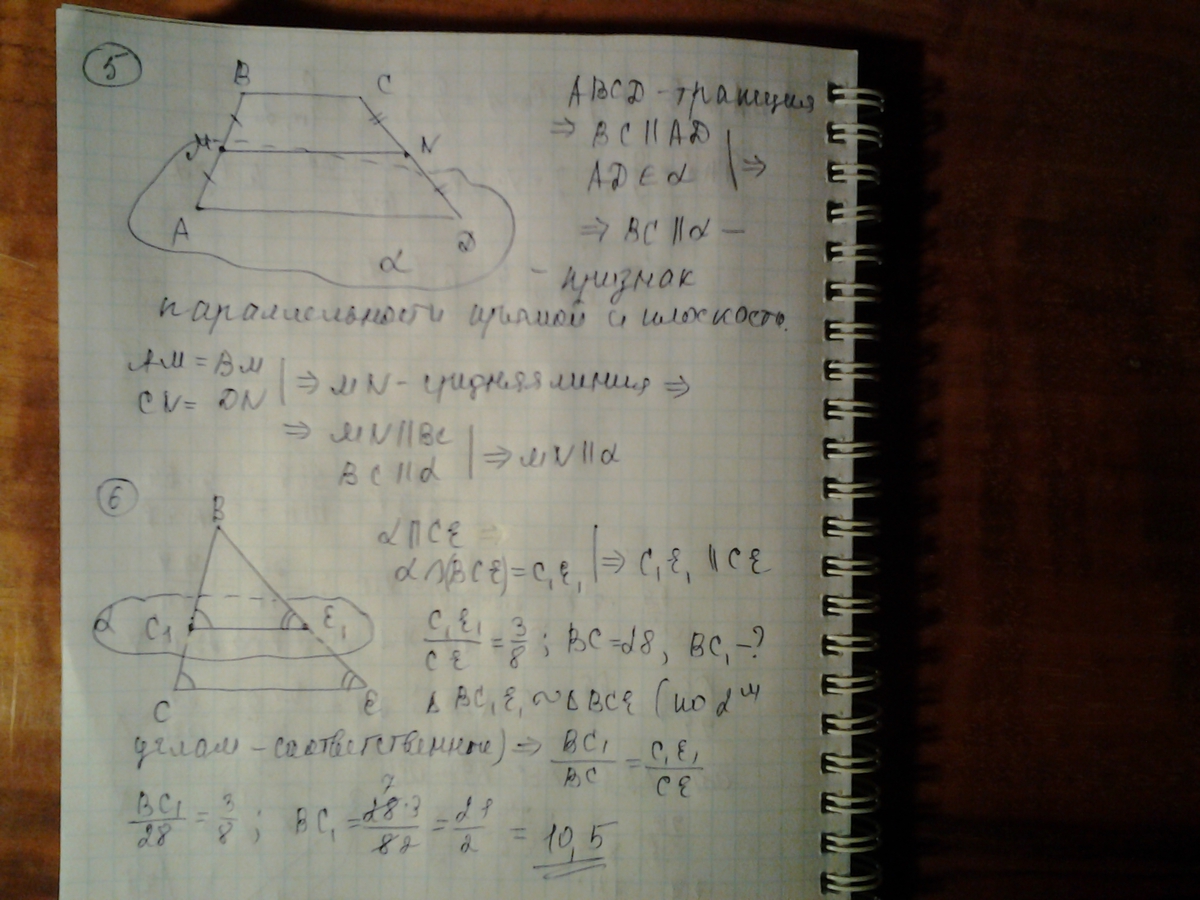 5
B C
M N
A D
α
ABCD - трапеция
⇒ BC || AD
AD ∈ α | ⇒
⇒ BC || α -
- признак
паралельности прямой и плоскость.
AM = BM
CN = DN | ⇒ MN - средняя линия ⇒
⇒ MN || BC
BC || α | ⇒ MN || α
6
B
α C₁ E₁
C E
α || CE ⇒
α ∩ (BCE) = C₁E₁ | ⇒ C₁E₁ || CE
C₁E₁/CE = 3/8 ; BC = 28, BC₁ - ?
Δ BC₁E₁ ~ Δ BCE (по 2ᵐ
углам - соответственные) ⇒ BC₁/BC = C₁E₁/CE
BC₁/28 = 3/8 ; BC₁ = 28·3/8 = 21/2 = 10,5
7 2